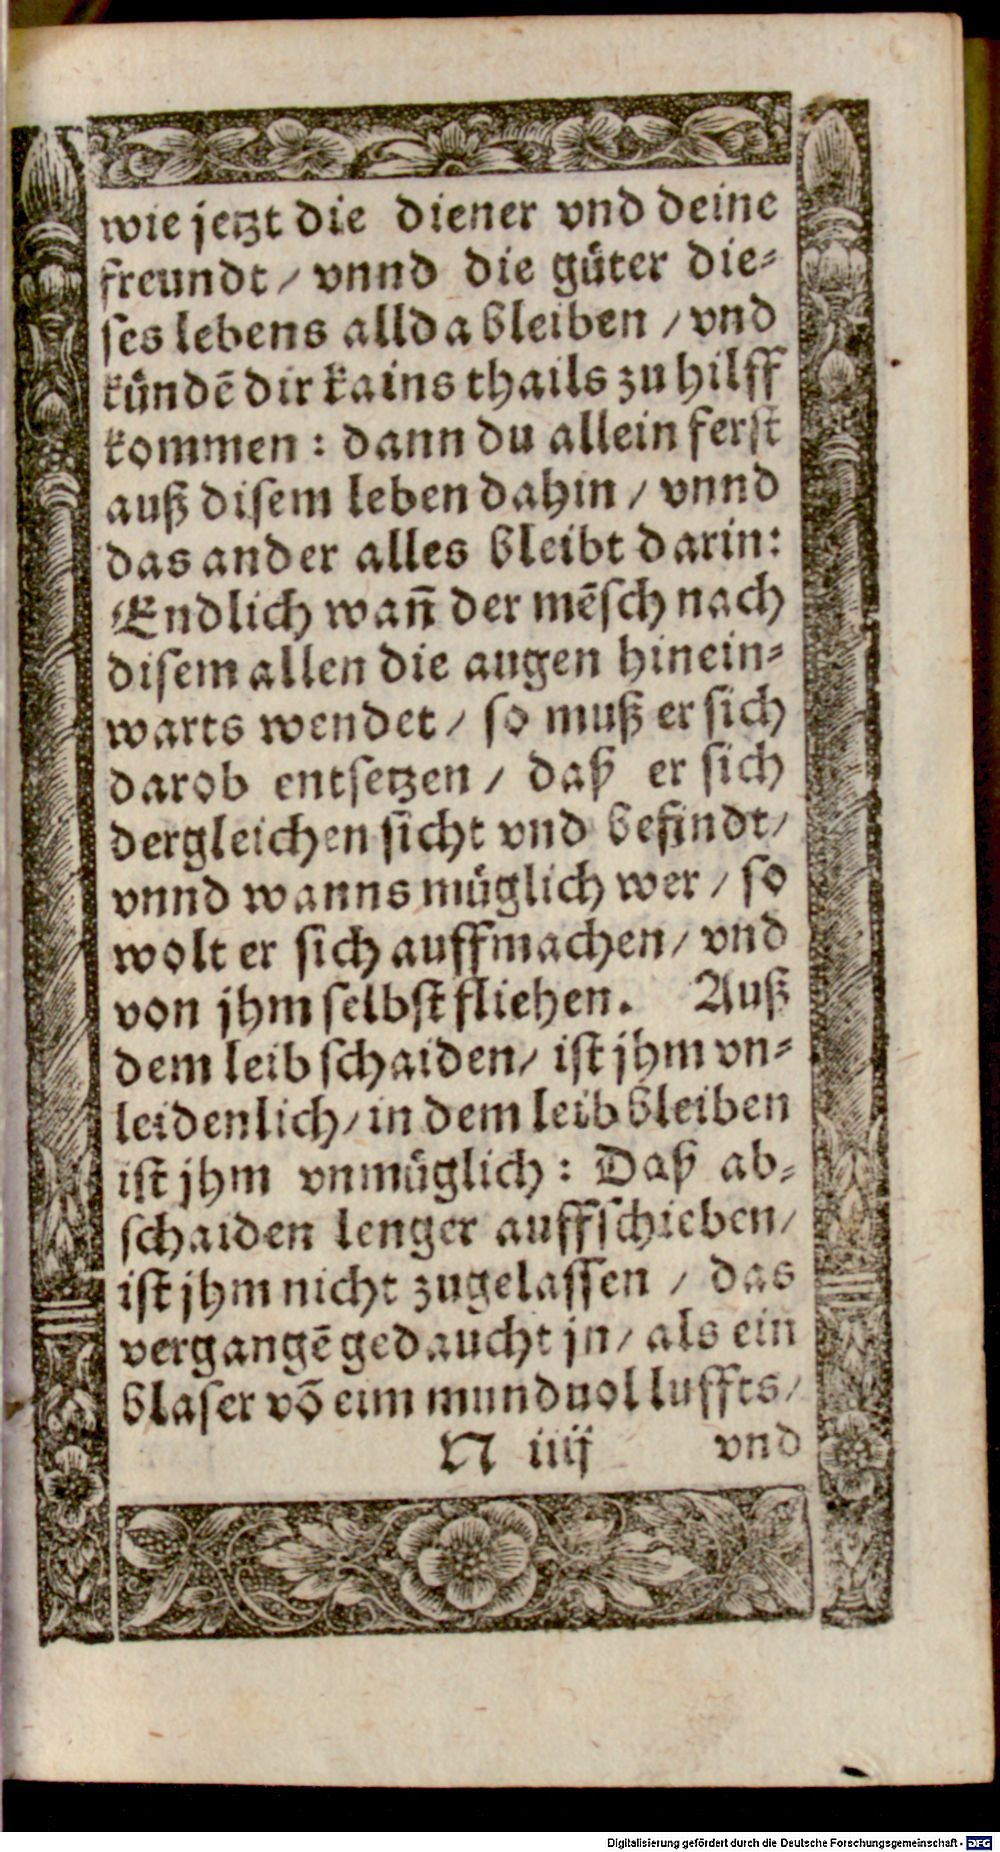 wie jetzt die diener vnd deine
freundt / vnnd die güter die-
ses lebens allda bleiben / vnd
kündē dir kains thails zu hilff
kommen : dann du allein ferst
auß disem leben dahin / vnnd
das ander alles bleibt darin:
Endlich wañ der mēsch nach
disem allen die augen hinein-
warts wendet / so muß er sich
darob entsetzen / daß er sich
dergleichen sicht vnd befindt /
vnnd wanns müglich wer / so
wolt er sich auffmachen / vnd
von jhm selbst fliehen. Auß
dem leib schaiden / ist jhm vn-
leidenlich / in dem leib bleiben
ist jhm vnmüglich : Daß ab-
schaiden lenger auffschieben /
ist jhm nicht zugelassen / das
vergangē gedaucht jn / als ein
blaser vō eim mund uol luffts /
N iiij vnd
Digitalisierung gefördert durch die Deutsche Forschungsgemeinschaft - DFG